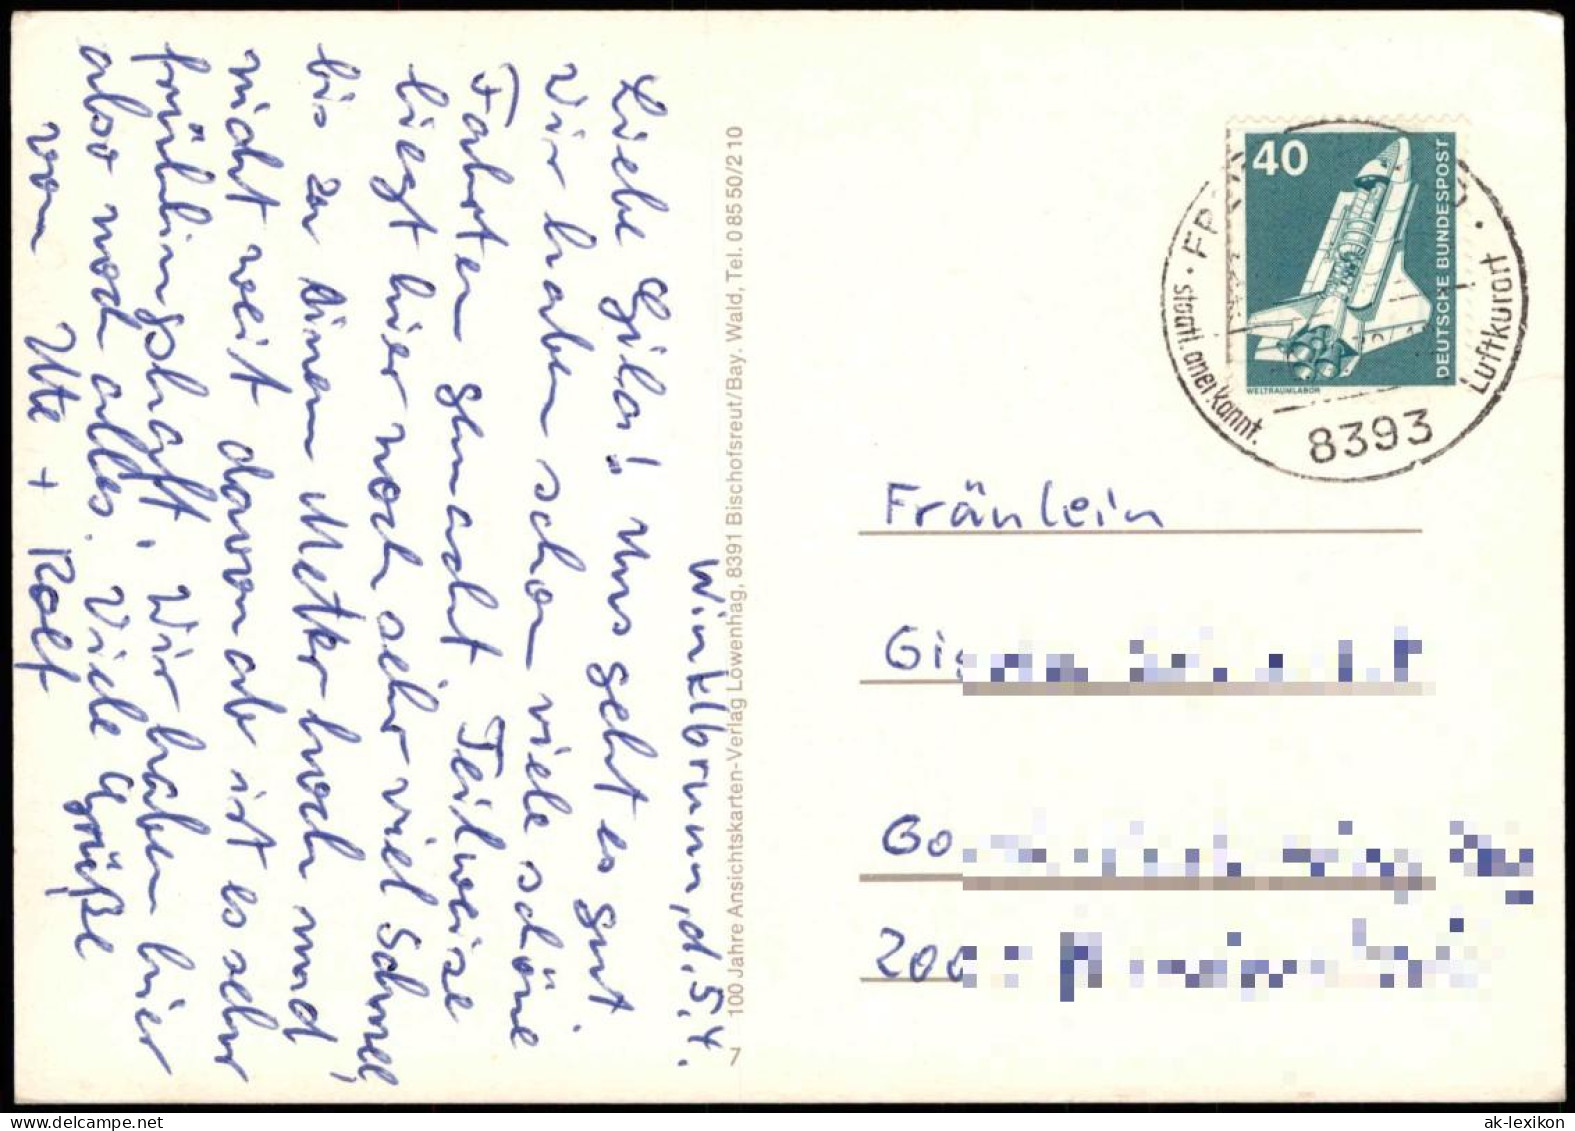 Winklbrunn, d. 5.4.
Liebe Gila! Uns geht es gut.
Wir haben schon viele schöne
Fahrten gemacht. Teilweise
liegt hier noch sehr viel Schnee,
bis zu einem Meter hoch und
nicht weit davon ab ist es sehr
frühlingshaft. Wir haben hier
also noch alles. Viele Grüße
von Ute + Rolf
7 100 Jahre Ansichtskarten-Verlag Löwenhag, 8391 Bischofsreut/Bay. Wald, Tel. 0 85 50/2 10
40
DEUTSCHE BUNDESPOST
WELTRAUMLABOR
staatl. anerkannt.
Luftkurort
8393
Fräulein
Gi
Go
200
ak-lexikon